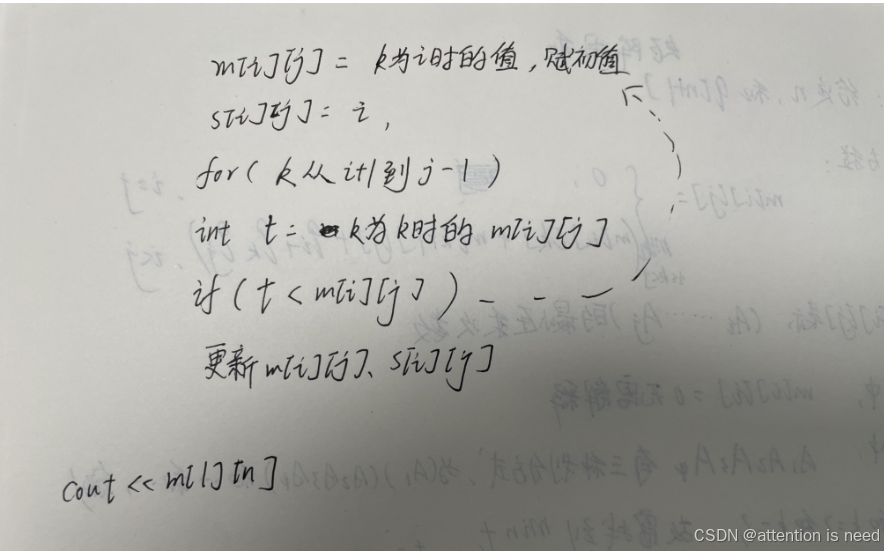 m[i][j] = k为i时的值,赋初值
s[i][j] = i,
for( k从i+1到j-1)
int t= k为k时的m[i][j]
if(t<m[i][j])---
更新m[i][j]、s[i][j]
cout << m[1][n]
CSDN @attention is need